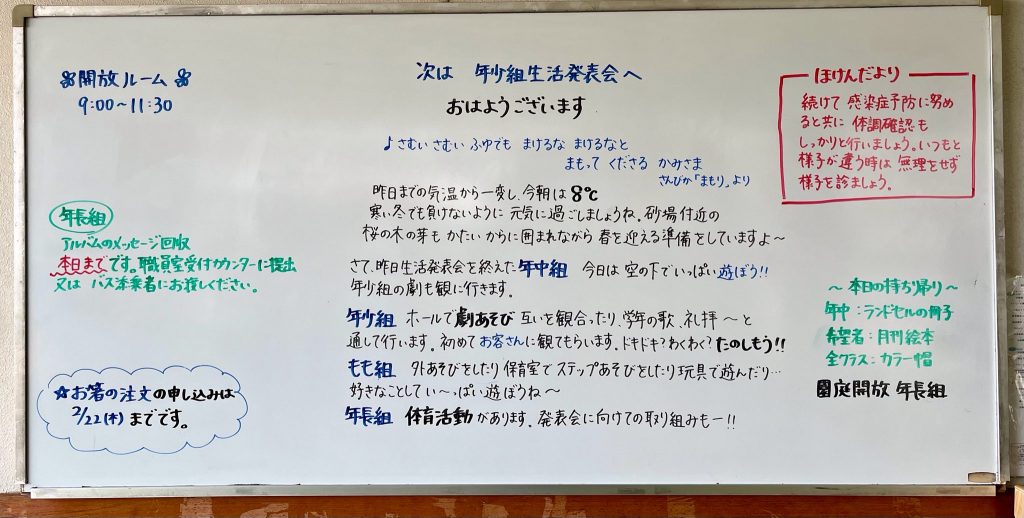 開放ルーム
9:00〜11:30
年長組
アルバムのメッセージ回収
本日までです。職員室受付カウンターに提出
又は バス添乗者にお渡しください。
☆お箸の注文の申し込みは
2/22(木)までです。
次は 年少組生活発表会へ
おはようございます
♪さむい さむい ふゆでも まけるな まけるなと
まもって くださる かみさま
さんびか「まもり」より
昨日までの気温から一変し、今朝は 8℃
寒い冬でも負けないように 元気に過ごしましょうね。砂場付近の
桜の木の芽も かたい からに囲まれながら 春を迎える準備をしていますよ〜
さて、昨日生活発表会を終えた年中組 今日は 空の下でいっぱい遊ぼう!!
年少組の劇も観に行きます。
年少組 ホールで劇あそび 互いを観合ったり、学年の歌、礼拝 〜と
通して行います。初めて お客さんに観てもらいます。ドキドキ?わくわく?たのしもう!!
もも組 外あそびをしたり 保育室で ステップあそびをしたり 玩具で遊んだり…
好きなことして い〜っぱい 遊ぼうね〜
年長組 体育活動があります。発表会に向けての取り組みもー!!
ほけんだより
続けて 感染症予防に努め
ると共に 体調確認も
しっかりと行いましょう。いつもと
様子が違う時は 無理をせず
様子を診ましょう。
〜 本日の持ち帰り 〜
年中:ランドセルの冊子
希望者:月刊絵本
全クラス:カラー帽
園庭開放 年長組